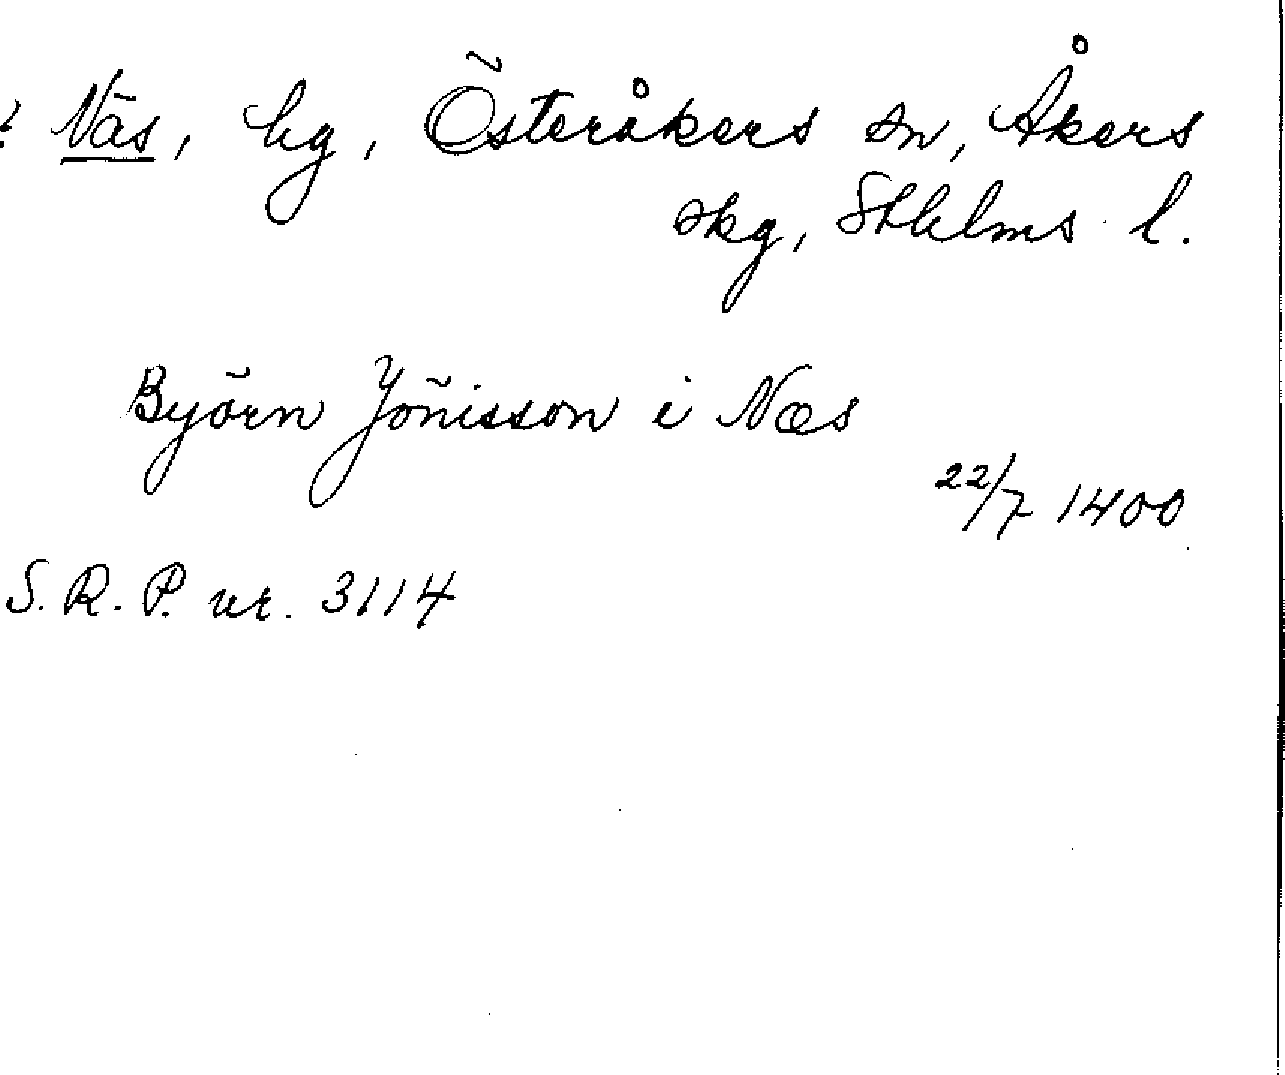 Näs, hg, Österåkers sn, Åkers
skg, Sthlms l.
Byörn Jönisson i Næs
22/7 1400
S. R. P. nr. 3114